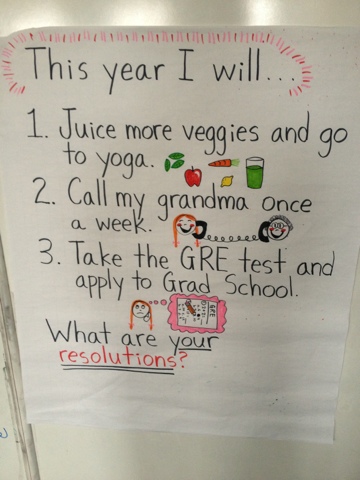 This year I will...
1. Juice more veggies and go
to yoga.
2. Call my grandma once
a week.
3. Take the GRE test and
apply to Grad School.
GRE
What are your
resolutions?